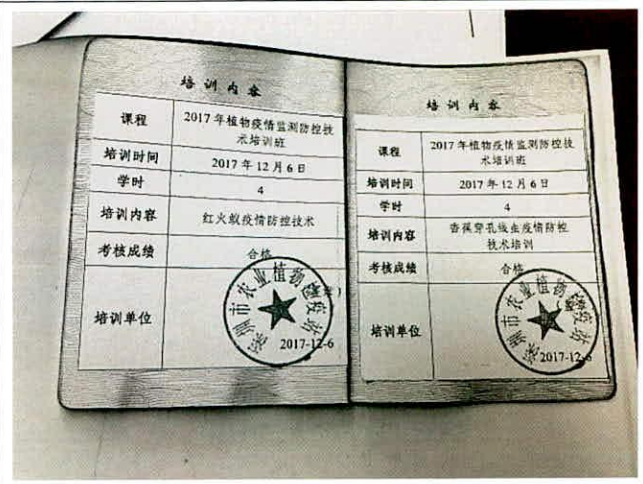 培训内容
课程
2017年植物疫情监测防控技
术培训班
培训时间
2017年12月6日
学时
4
培训内容
红火蚁疫情防控技术
考核成绩
合格
培训单位
深圳市农业植物检疫站
2017-12-6
培训内容
课程
2017年植物疫情监测防控技
术培训班
培训时间
2017年12月6日
学时
4
培训内容
香蕉穿孔线虫疫情防控
技术培训
考核成绩
合格
培训单位
深圳市农业植物检疫站
2017-12-6